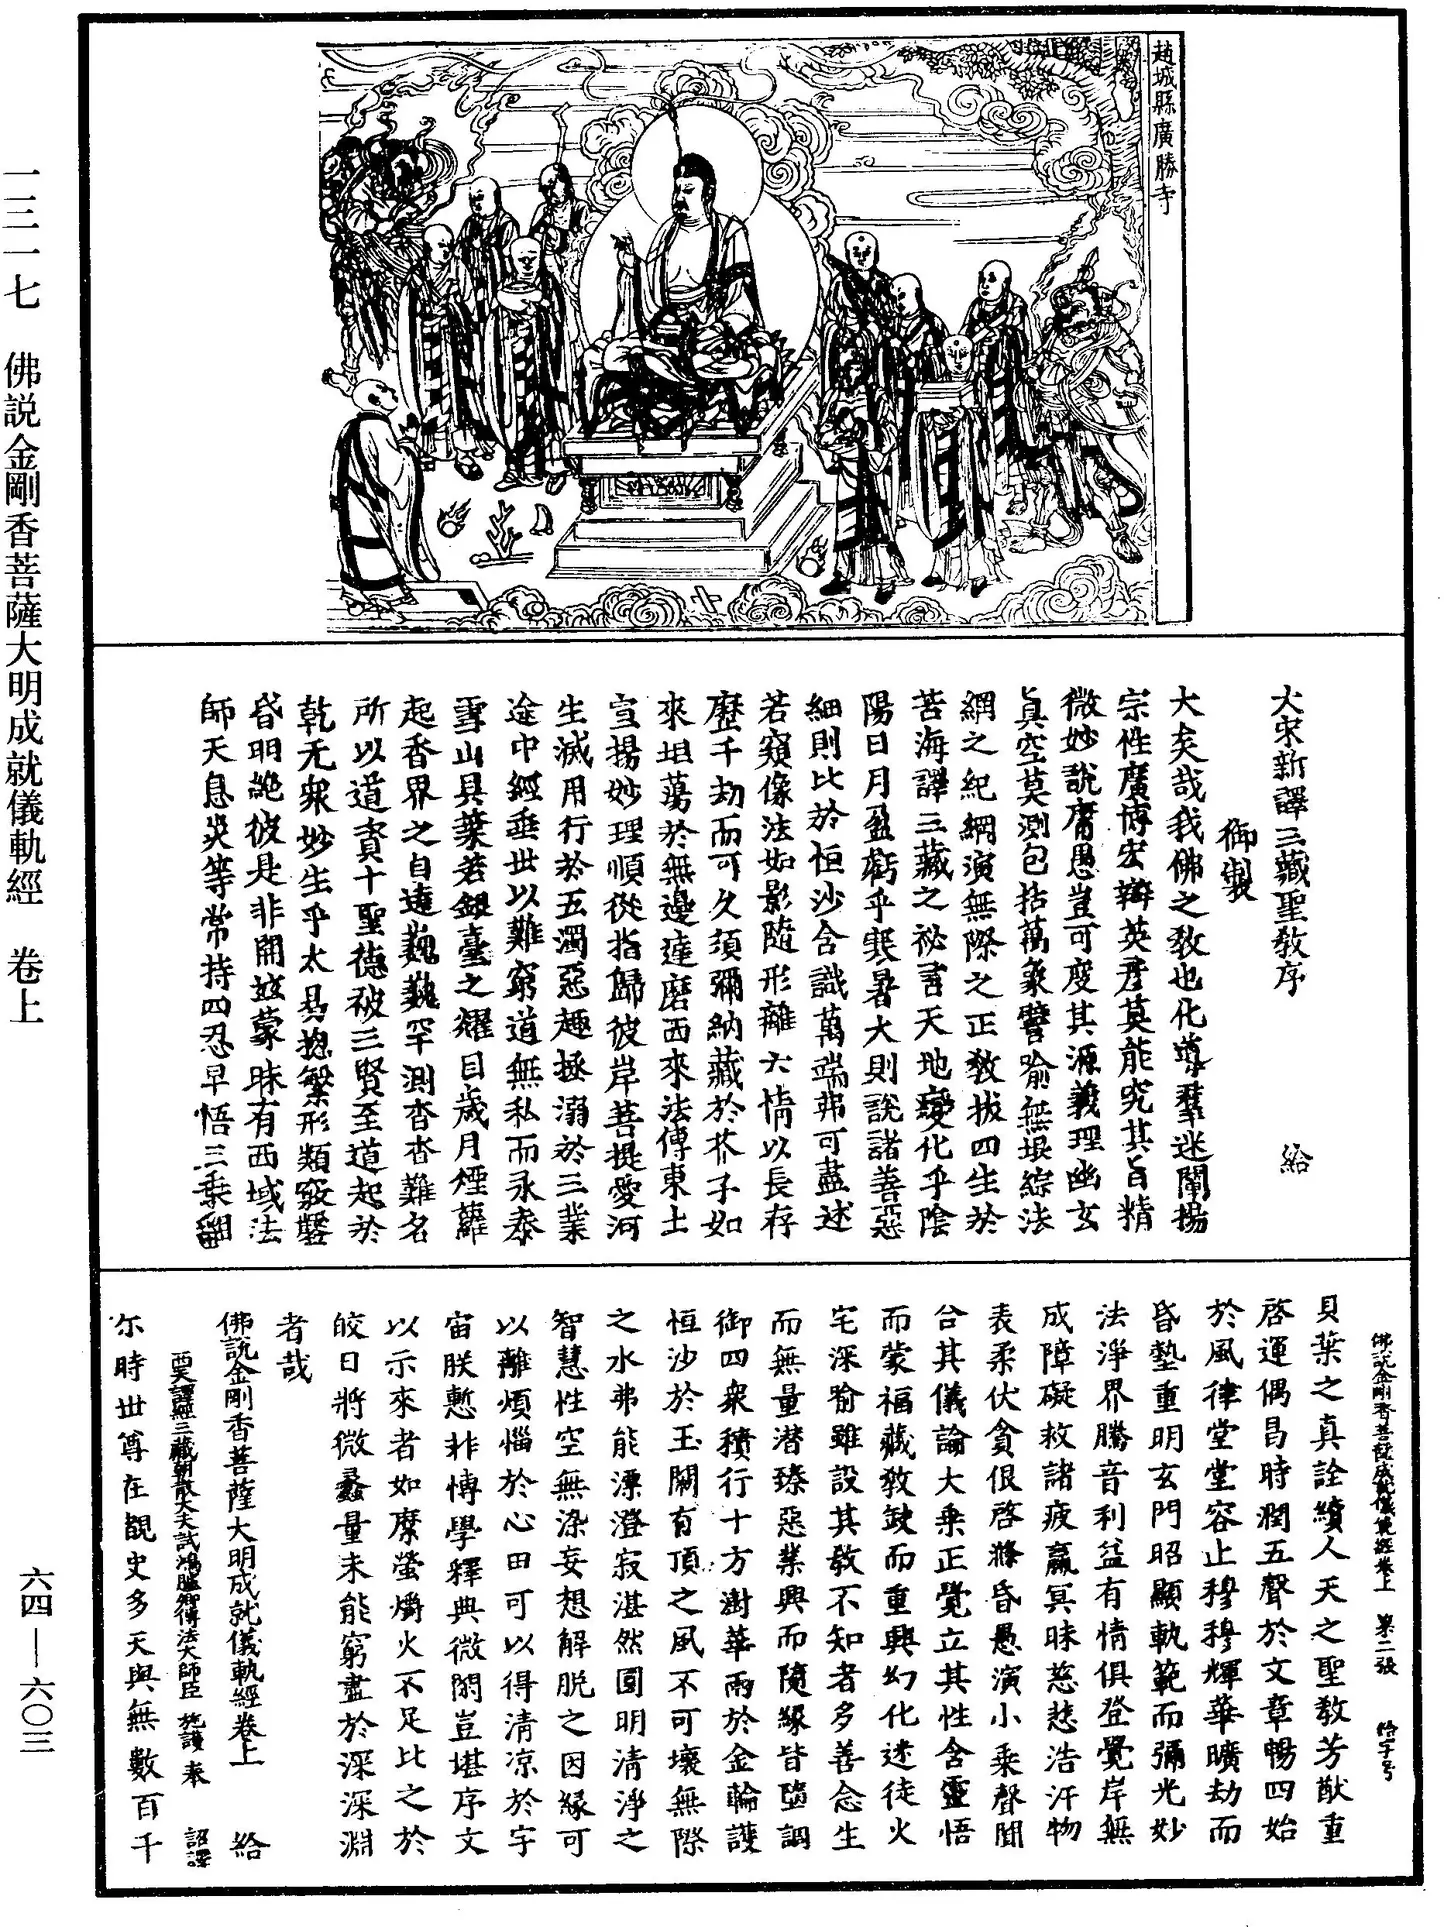 趙城縣廣勝寺
大宋新譯三藏聖教序 給
御製
大矣哉我佛之教也化導羣迷闡揚
宗性廣博宏辯英彥莫能究其旨精
微妙說庸愚豈可度其源義理幽玄
真空莫測包括萬象譬喻無垠綜法
網之紀綱演無際之正教拔四生於
苦海譯三藏之祕言天地變化乎陰
陽日月盈虧乎寒暑大則說諸善惡
細則比於恒沙含識萬端弗可盡述
若窺像法如影隨形離六情以長存
歷千劫而可久須彌納藏於芥子如
來坦蕩於無邊達磨西來法傳東土
宣揚妙理順從指歸彼岸菩提愛河
生滅用行於五濁惡趣拯溺於三業
途中經垂世以難窮道無私而永泰
雪山貝葉若銀臺之耀目歲月煙蘿
起香界之自遠巍巍罕測杳杳難名
所以道資十聖德被三賢至道起於
乾元衆妙生乎太易揔繁形類竅鑿
昏明絶彼是非開兹蒙昧有西域法
師天息災等常持四忍早悟三乘翻
佛說金剛香菩薩成就儀軌經卷上 第二張 給字号
貝葉之真詮續人天之聖教芳猷重
啓運偶昌時潤五聲於文章暢四始
於風律堂堂容止穆穆輝華曠劫而
昏墊重明玄門昭顯軌範而彌光妙
法淨界騰音利益有情俱登覺岸無
成障礙救諸疲羸冥昧慈悲浩汗物
表柔伏貪佷啓滌昏愚演小乘聲聞
合其儀論大乘正覺立其性含靈悟
而蒙福藏教缺而重興幻化迷徒火
宅深喻雖設其教不知者多善念生
而無量潛臻惡業興而隨緣皆墮調
御四衆積行十方澍華雨於金輪護
恒沙於玉闕有頂之風不可壞無際
之水弗能漂澄寂湛然圓明清淨之
智慧性空無染妄想解脫之因緣可
以離煩惱於心田可以得清凉於宇
宙朕慙非博學釋典微閑豈堪序文
以示來者如縻螢爝火不足比之於
皎日將微蠡量未能窮盡於深深淵
者哉
佛說金剛香菩薩大明成就儀軌經卷上 給
西天譯經三藏朝散大夫試鴻臚卿傳法大師臣施護奉 詔譯
尒時世尊在覩史多天與無數百千
一三一七 佛説金剛香菩薩大明成就儀軌經 卷上
六四—六〇三